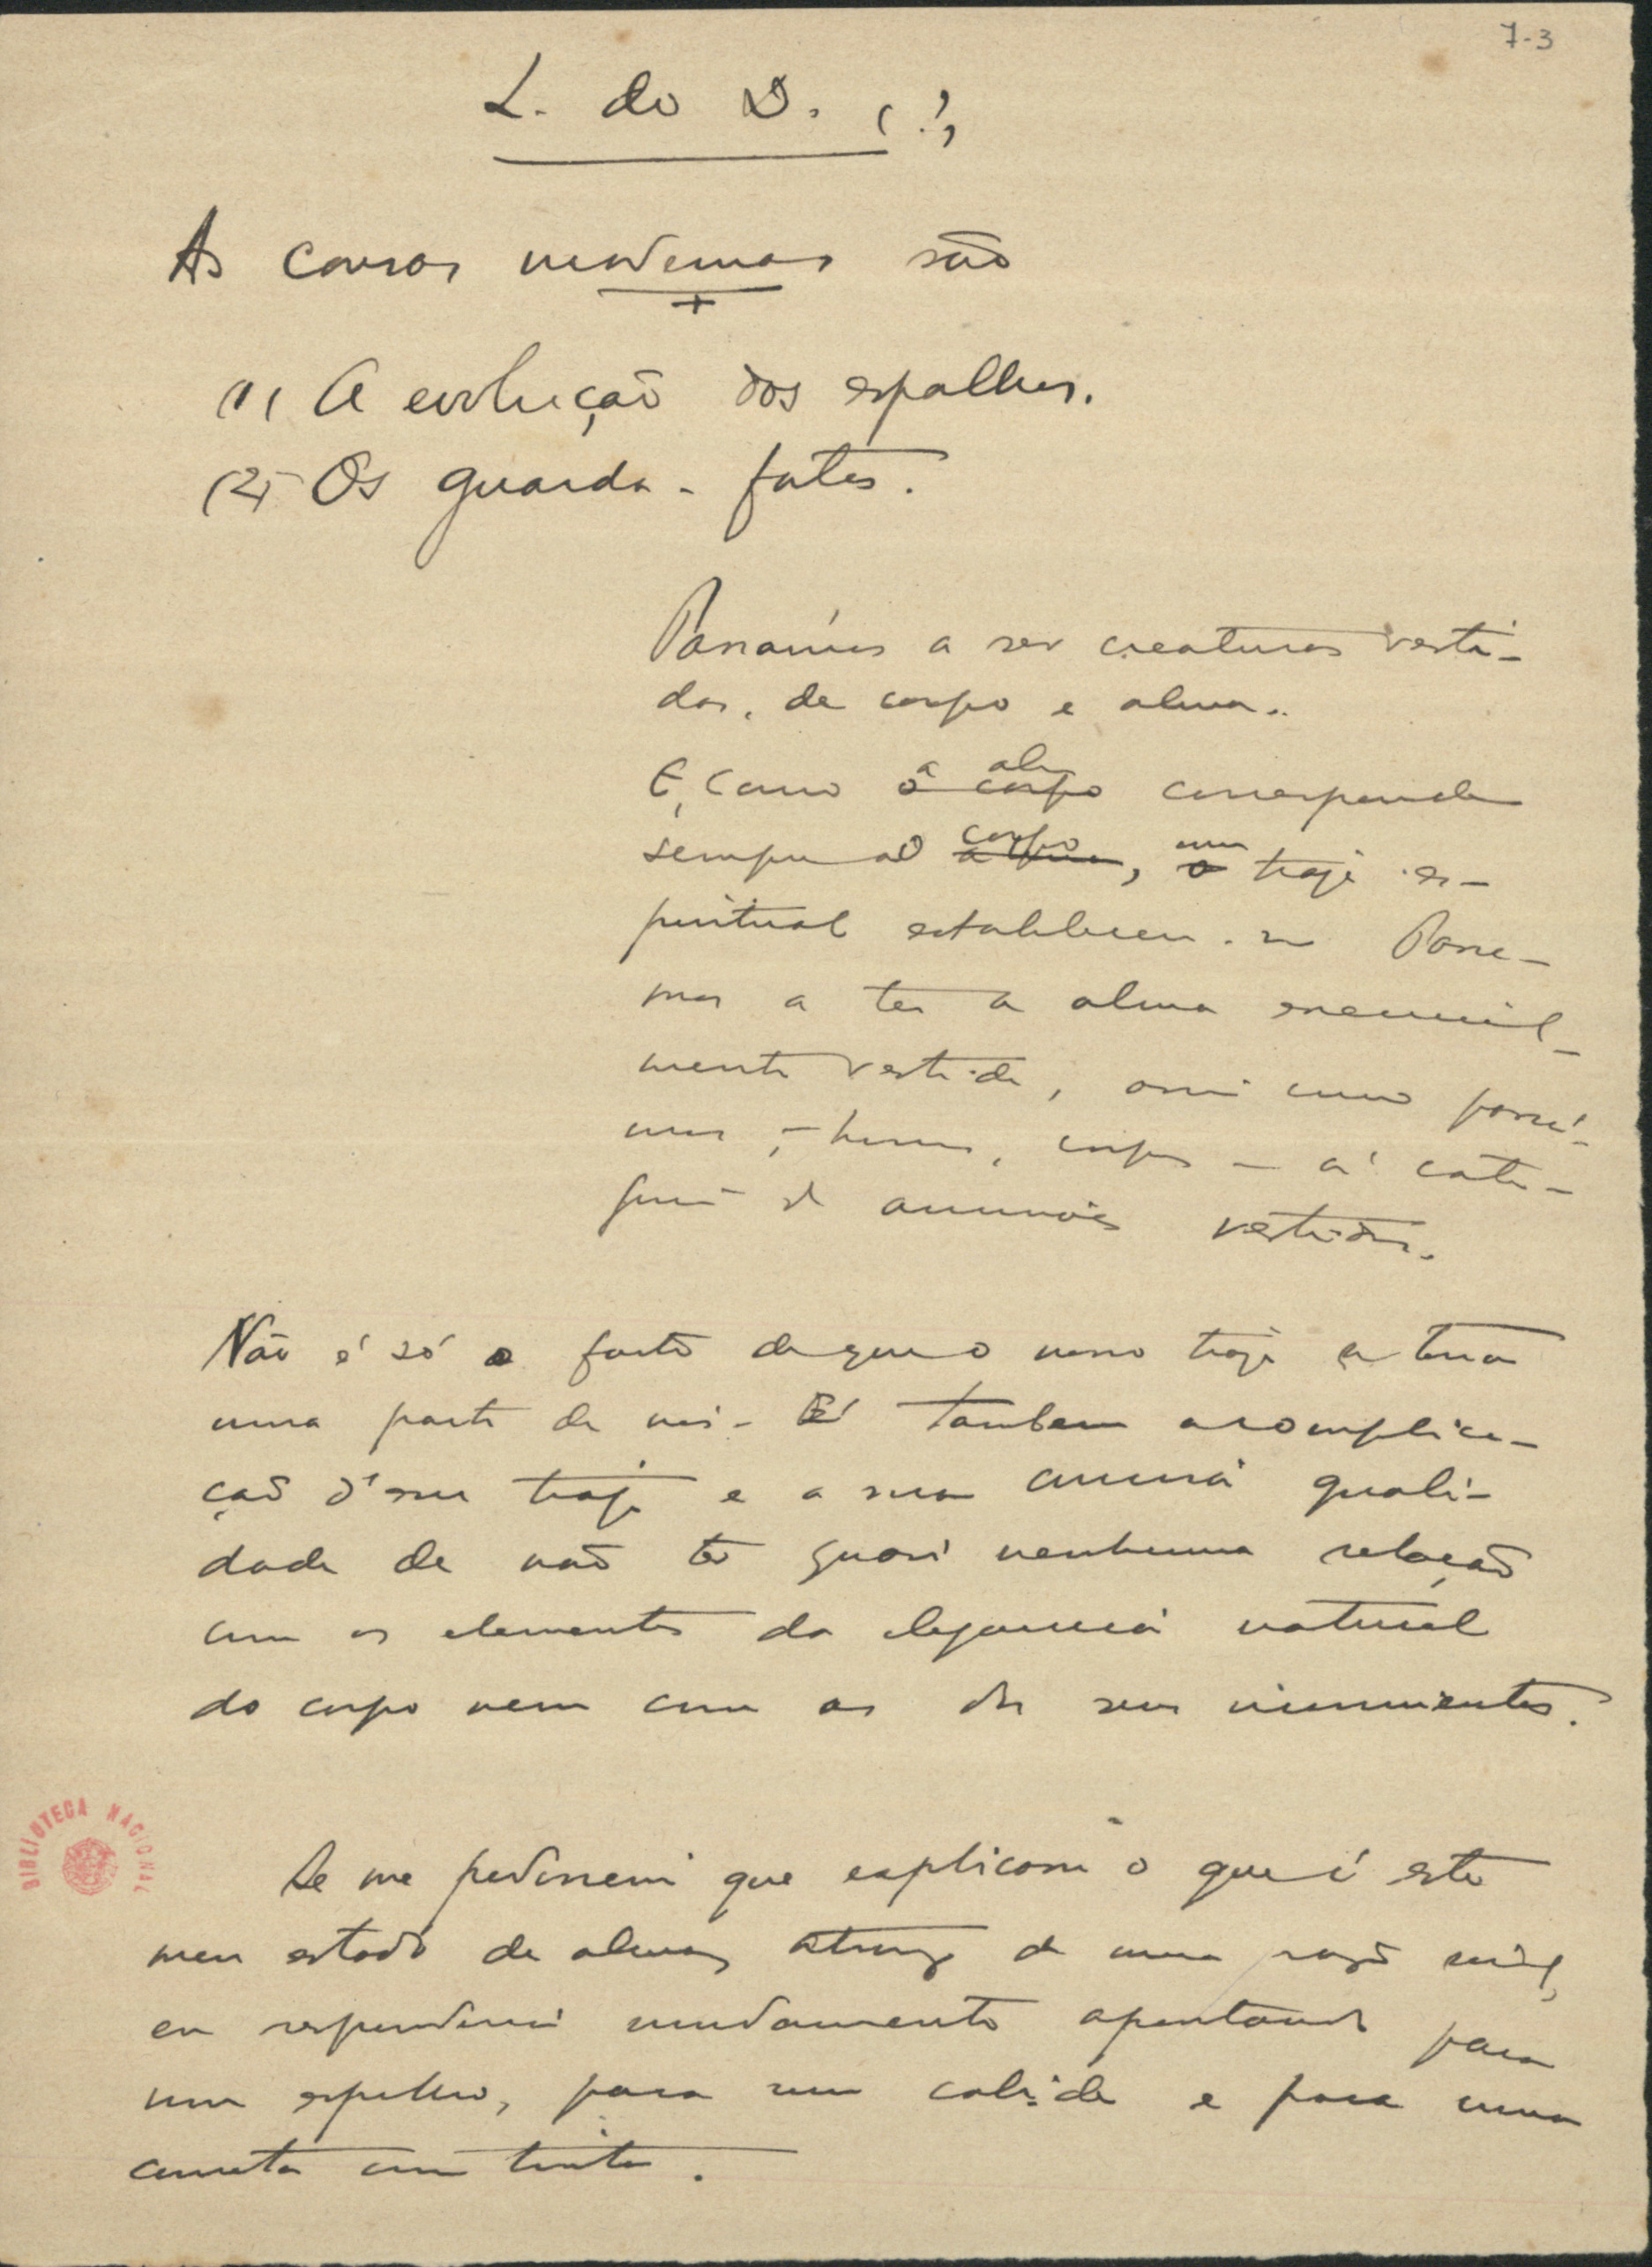 7-3
L. do D. (?)
As cousas modernas são
+
(1) A evolução dos espelhos.
(2) Os guarda-fatos.
Passámos a ser creaturas vesti-
das, de corpo e alma.
E, como a alma corresponde
sempre ao corpo, um traje es-
piritual estabeleceu-se. Passá-
mos a ter a alma essencial-
mente vestida, assim como passá-
mos, — homens, corpos — á cate-
goria de animaes vestidos.
Não é só o facto de que o nosso traje se torna
uma parte de nós. É tambem a complica-
ção d'esse traje e a sua curiosa quali-
dade de não ter quasi nenhuma relação
com os elementos da elegancia natural
do corpo nem com os dos seus movimentos.
Se me pedissem que explicasse o que é este
meu estado de alma, atravez de uma razão social,
eu responderia mudamente apontando para
um espelho, para um cabide e para uma
caneta com tinta.
BIBLIOTECA NACIONAL